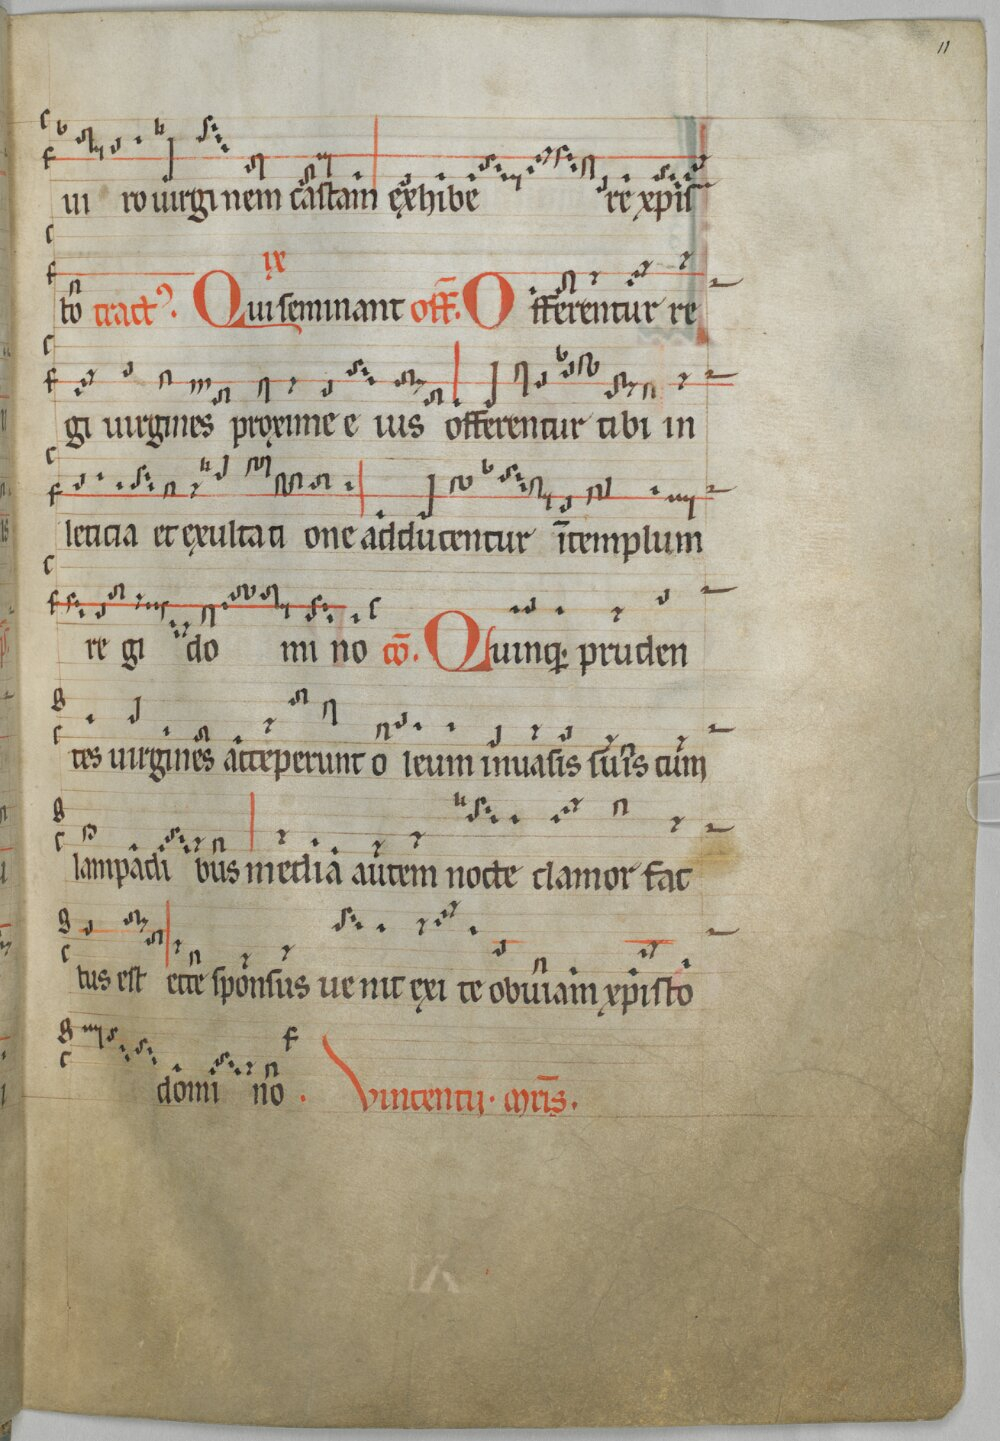 11
ui ro uirginem castam exhibe re xpis
ix
to tract. Qui seminant off. Offerentur re
gi uirgines proxime e ius offerentur tibi in
leticia et exultati one adducentur ītemplum
re gi do mi no cō. Quinq; pruden
tes uirgines acceperunt o leum inuasis suis cum
lampadi bus media autem nocte clamor fac
tus est ecce sponsus ue nit exi te obuiam xpisto
domi no. Vincentij. mr̄is.